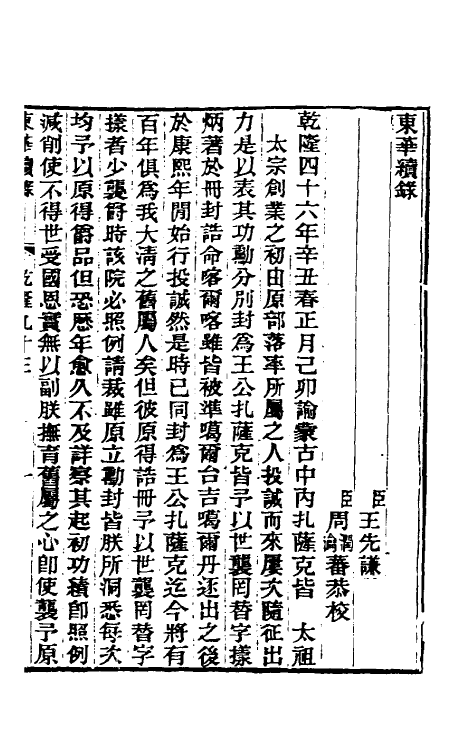 東華續錄
臣王先謙
臣周潤蕃恭校
乾隆四十六年辛丑春正月己卯諭蒙古中內扎薩克皆　太祖
太宗創業之初由原部落率所屬之人投誠而來屢次隨征出
力是以表其功勳分別封爲王公扎薩克皆予以世襲罔替字樣
炳著於冊封誥命喀爾喀雖皆被準噶爾台吉噶爾丹逐出之後
於康熙年間始行投誠然是時已同封爲王公扎薩克迄今將有
百年俱爲我大清之舊屬人矣但彼原得誥冊予以世襲罔替字
樣者少襲爵時該院必照例請裁雖原立勳封皆朕所洞悉每次
均予以原得爵品但恐歷年愈久不及詳察其起初功績卽照例
減削使不得世受國恩實無以副朕撫育舊屬之心卽使襲予原
東華續錄　乾隆九十三　一